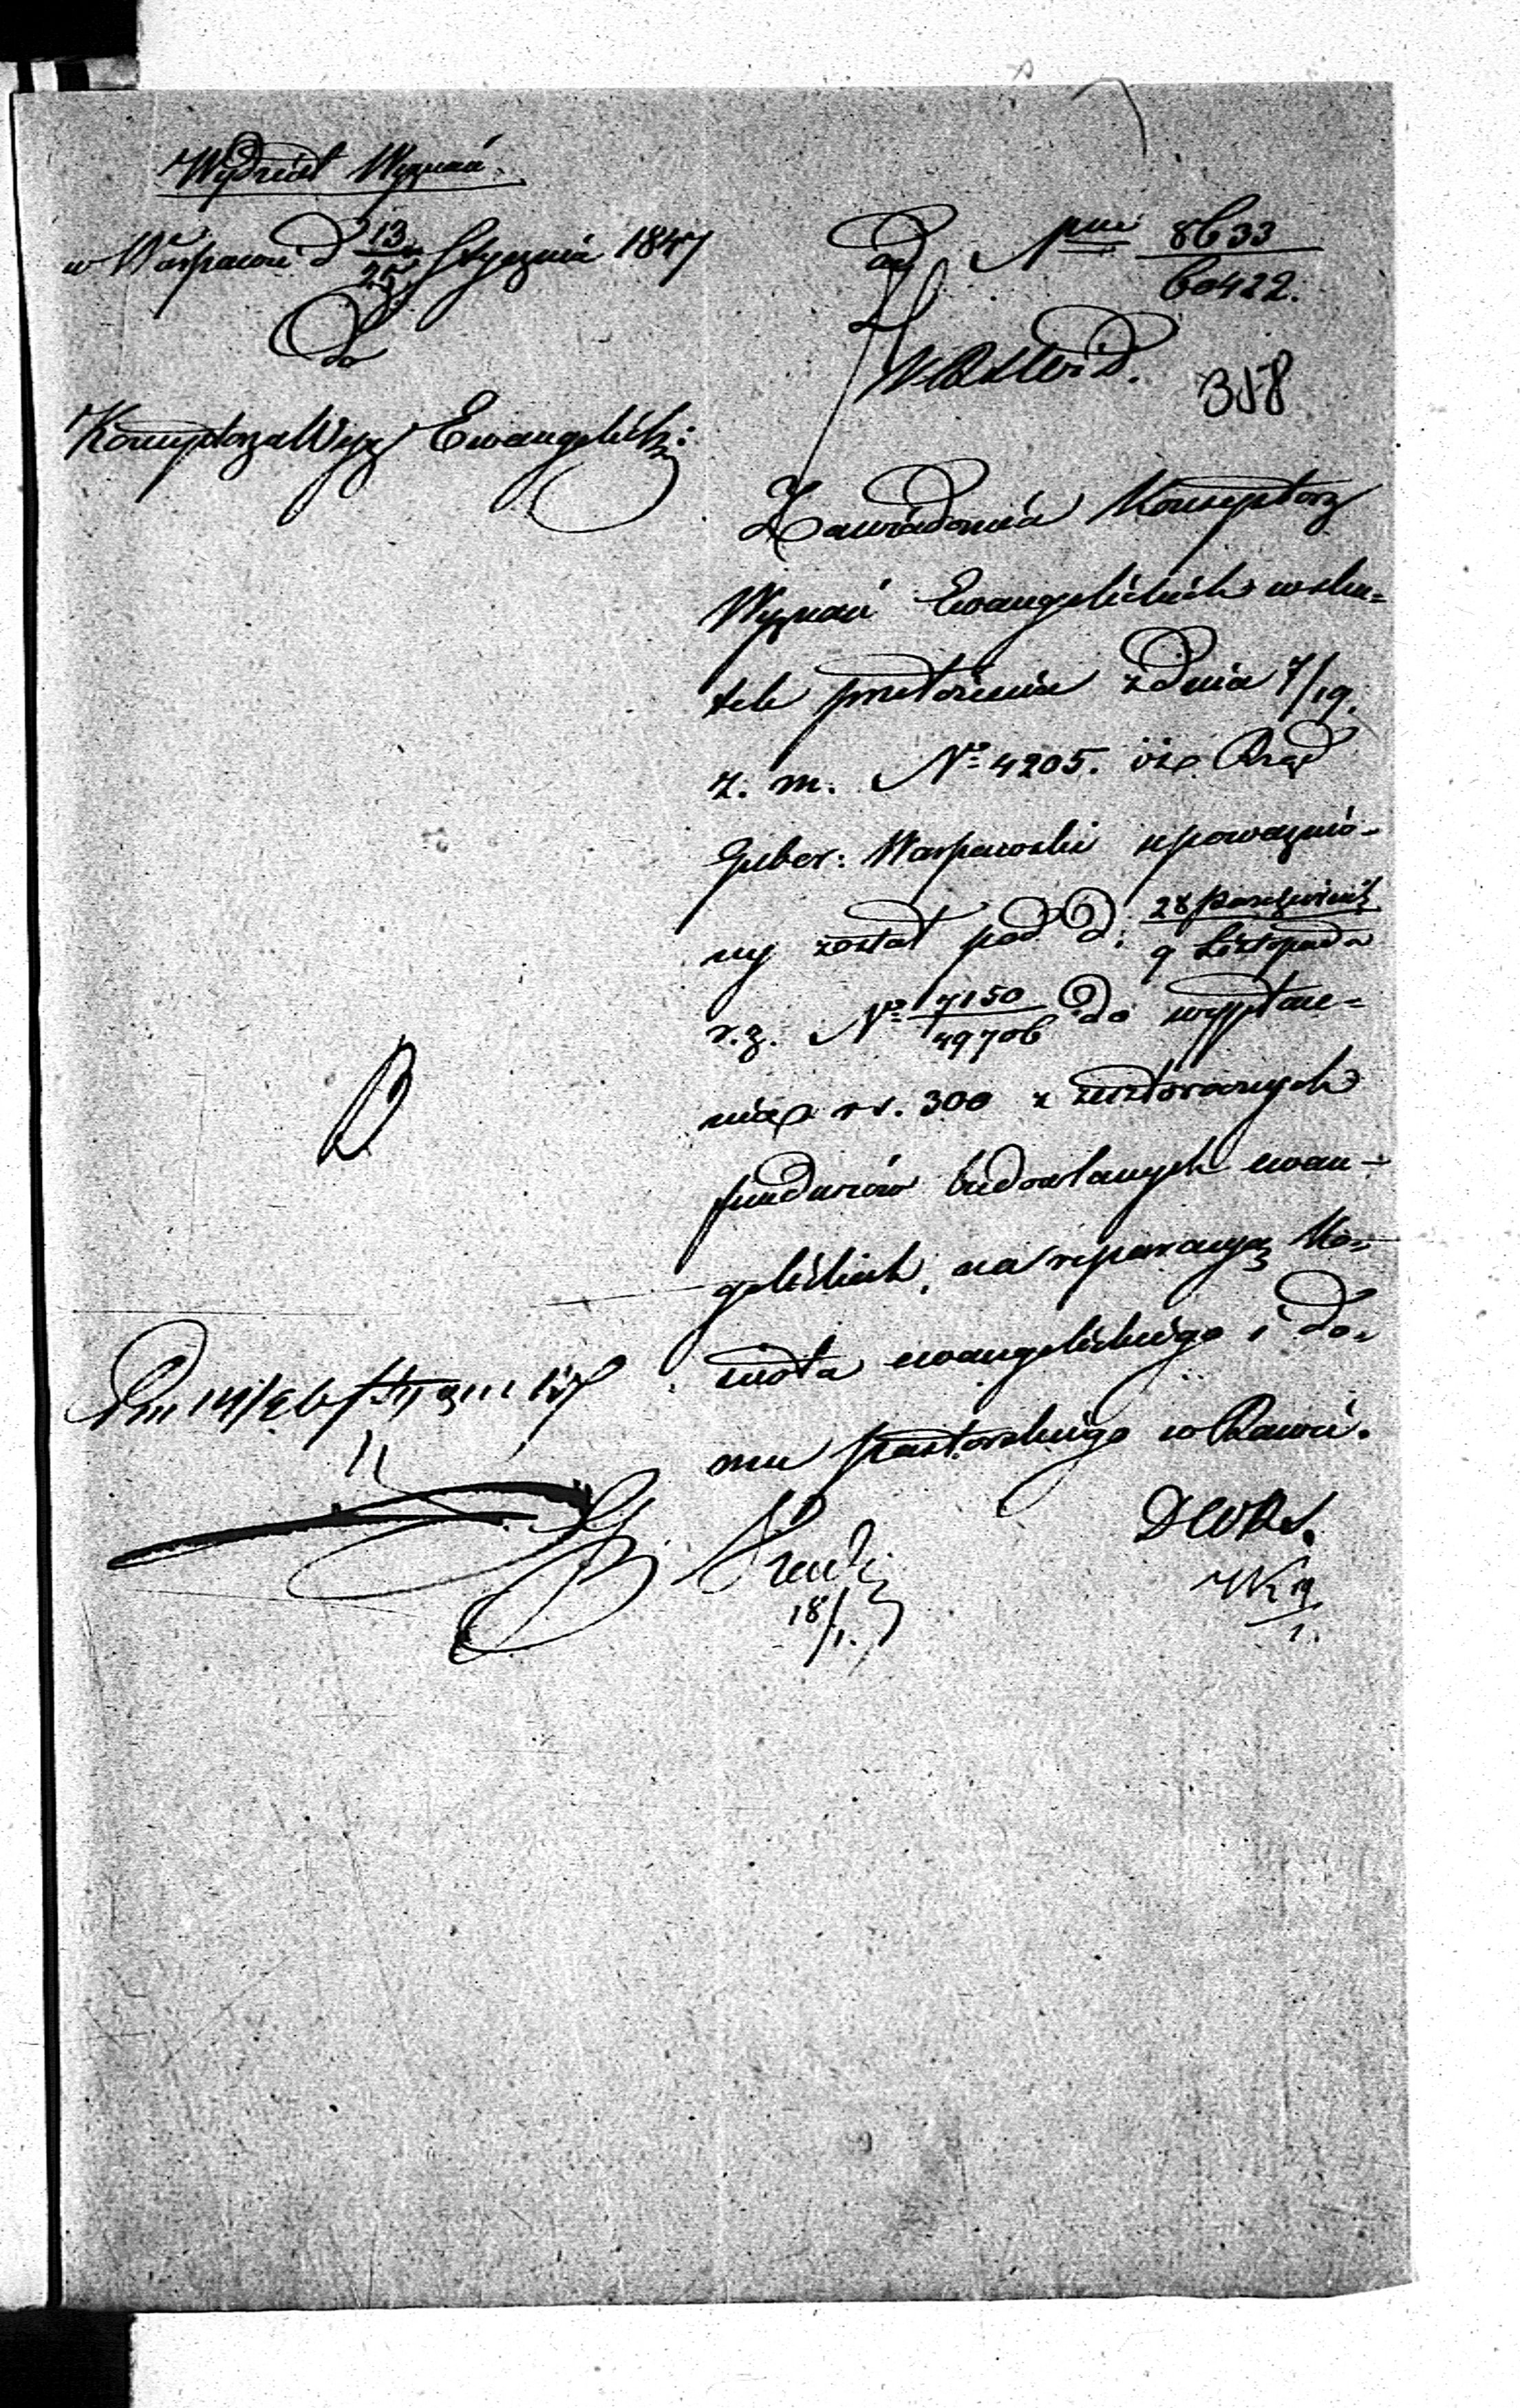 Wydział Wyznań.
w Warszawie d 13/25 Stycznia 1847
Do
Konsystorza Wyz Ewangelick:
ad Nrm 8633/60422.
358
Zawiadomia Konsystorz
Wyznań Ewangelickich w sku=
tek przełożenia z dnia 7/19.
z. m. No 4205. iże Rząd
Guber: Warszawski upoważnio-
ny został pod d: 28 Października/9 Listopada
r. z. No 7150/49706 do wypłace=
nia rs. 300 z zesztorocznych
funduszów budowlanych ewan-
gelickich, na reparacyą Ko=
scioła ewangelickiego i do=
mu pastorskiego w Rawie.
18/1.
19/1.